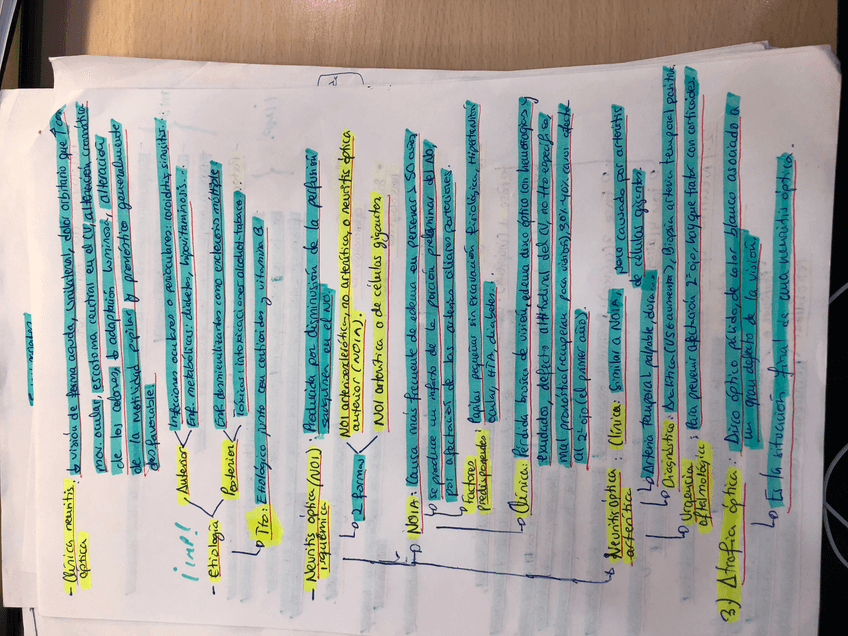 - Clínica neuritis óptica: ↓ visión de forma aguda, unilateral, dolor orbitario que ↑ con
mov. ocular, escotoma central en el CV, alteración cromática
de los colores, ↓ adaptación luminosa, alteración
de la motilidad pupilar y pronóstico generalmente
desfavorable.
¡IMP!
- Etiología
Anterior
Infecciones oculares o perioculares: coroiditis, sinusitis...
Enf. metabólicas: diabetes, hipovitaminosis...
Posterior
Enf. desmielinizantes como esclerosis múltiple
Tóxicas: intoxicaciones alcohol, tabaco...
Tto: Etiológico junto con corticoides y vitamina B
- Neuritis óptica isquémica (NOI): Producida por disminución de la perfusión
sanguínea en el NO.
2 formas
NOI arterioesclerótica, no arterítica, o neuritis óptica
anterior (NOIA).
NOI arterítica o de células gigantes
NOIA: Causa más frecuente de edema en personas > 50 años
se produce un infarto de la porción preliminar del NO,
por afectación de las arterias ciliares posteriores.
Factores predisponentes: Papilas pequeñas sin excavación fisiológica, hipertensión
ocular, HTA, diabetes.
Clínica: Pérdida brusca de visión, edema disco óptico con hemorragias y
exudados, defecto altitudinal del CV, no tto específico,
mal pronóstico (recuperan poca visión), 30% - 40% casos afecta
al 2º ojo (el primer año).
Neuritis óptica arterítica: Clínica: Similar a NOIA, pero causado por arteritis
de células gigantes.
Arteria temporal palpable, dura...
Diagnóstico: Analítica (VS aumento), Biopsia arteria temporal positiva.
Urgencia oftalmológica: Para prevenir afectación 2º ojo, hay que tratar con corticoides.
3) Atrofia óptica: Disco óptico pálido, de color blanco asociado a
un gran defecto de la visión
Es la situación final de una neuritis óptica.